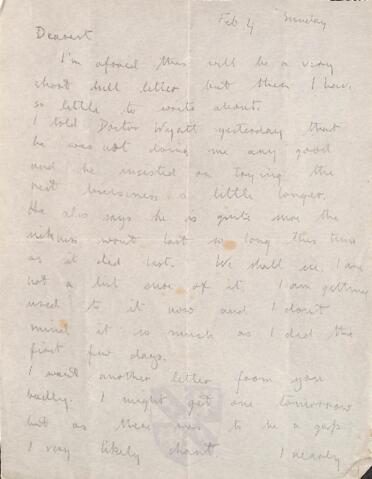 Feb 4 Sunday
Dearest
I'm afraid this will be a very
short dull letter but then I have
so little to write about.
I told Doctor Wyatt yesterday that
he was not doing me any good
and he insisted on trying the
rest business a little longer.
He also says he is quite sure the
sickness wont last so long this time
as it did last. We shall see. I am
not a bit sure of it. I am getting
used to it now and I dont
mind it so much as I did the
first few days.
I want another letter from you
badly. I might get one tomorrow
but as there was to be a gap
I very likely shant. I nearly